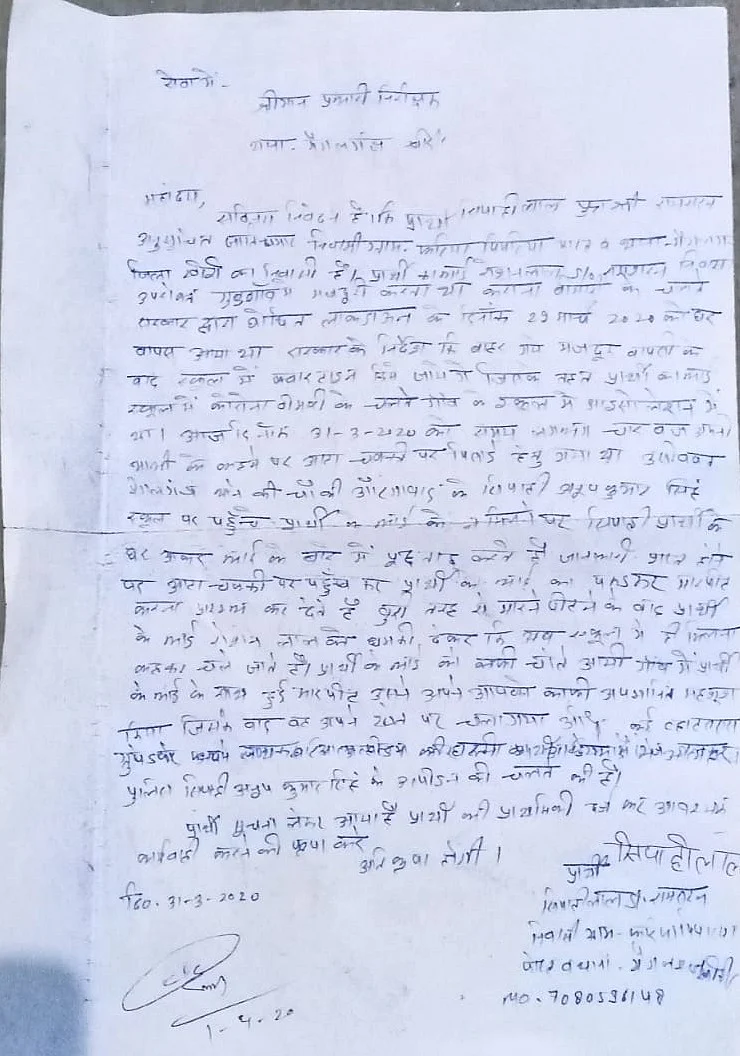 सेवा में -
श्रीमान प्रभारी निरीक्षक
थाना - मैगलगंज खीरी
महोदय,
सविनय निवेदन है कि प्रार्थी सिपाहीलाल पुत्र श्री रामरतन
अनुसूचित जाति चमार निवासी ग्राम फरिया पिपरिया व थाना - मैगलगंज
जिला खीरी का निवासी है। प्रार्थी का भाई रोशनलाल S/o रामरतन निवासी
उपरोक्त गुडगाँव में मजदूरी करता था कोरोना बीमारी के चलते
सरकार द्वारा घोषित लाकडाऊन के दिनाँक 29 मार्च 2020 को घर
वापस आया था सरकार के निर्देश कि बाहर गये मजदूर वापसी के
बाद स्कूल में क्वारटाइन किये जायेंगे जिसके तहत प्रार्थी का भाई
स्कूल में कोरोना बीमारी के चलते गाँव के स्कूल में आइसोलेशन में
था। आज दिनाँक 31-3-2020 को समय लगभग चार बजे अपनी
भाभी के कहने पर आटा चक्की पर पिसाई हेतु गया था उसी वक्त
मैगलगंज थाने की चौकी औरंगाबाद के सिपाही अनूप कुमार सिंह
स्कूल पर पहुँचे प्रार्थी के भाई के न मिलने पर सिपाही प्रार्थी के
घर आकर भाई के बारे में पूछताछ करते हैं जानकारी प्राप्त होने
पर आटा चक्की पर पहुँच कर प्रार्थी के भाई को पकडकर मारपीट
करना प्रारम्भ कर देते हैं बुरी तरह से मारने पीटने के बाद प्रार्थी
के भाई रोशन लाल को धमकी देकर कि अब स्कूल में ही मिलना
कहकर चले जाते हैं। प्रार्थी के भाई को काफी चोटे आयी गाँव में प्रार्थी
के भाई के साथ हुई मारपीट उसने अपने आपको काफी अपमानित महसूस
किया जिसके बाद वह अपने खेत पर चला गया और
पुलिस सिपाही अनूप कुमार सिंह के उत्पीडन के चलते की है।
प्रार्थी सूचना लेकर आया है प्रार्थी की प्राथमिकी दर्ज कर आवश्यक
कार्यवाही करने की कृपा करें
अति कृपा होगी।
दि0. 31-3-2020
प्रार्थी सिपाहीलाल
सिपाहीलाल S/o रामरतन
निवासी ग्राम - फरिया पिपरिया
पोस्ट व थाना - मैगलगंज खीरी
MO - 7080596148
1-4-20